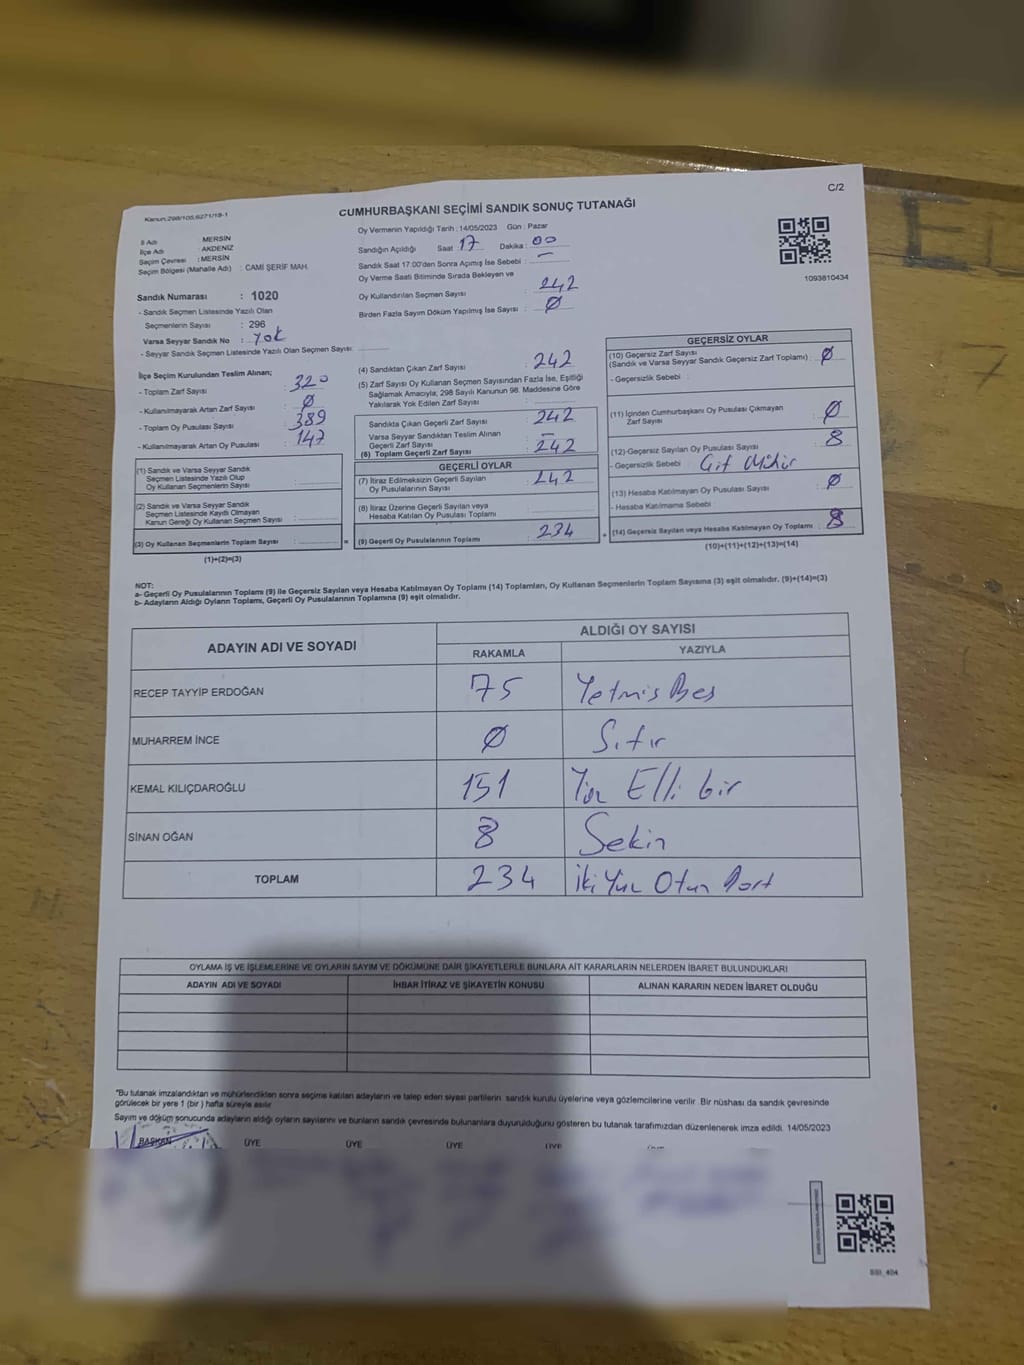 C/2
Kanun:298/105,6271/18-1
CUMHURBAŞKANI SEÇİMİ SANDIK SONUÇ TUTANAĞI
İl Adı : MERSİN
İlçe Adı : AKDENİZ
Seçim Çevresi : MERSİN
Seçim Bölgesi (Mahalle Adı) : CAMİ ŞERİF MAH.
Sandık Numarası : 1020
- Sandık Seçmen Listesinde Yazılı Olan
Seçmenlerin Sayısı : 296
Varsa Seyyar Sandık No : Yok
- Seyyar Sandık Seçmen Listesinde Yazılı Olan Seçmen Sayısı:
Oy Vermenin Yapıldığı Tarih : 14/05/2023 Gün : Pazar
Sandığın Açıldığı Saat : 17 Dakika : 00
Sandık Saat 17:00'den Sonra Açımış İse Sebebi : —
Oy Verme Saati Bitiminde Sırada Bekleyen ve
Oy Kullandırılan Seçmen Sayısı : 242
Birden Fazla Sayım Döküm Yapılmış İse Sayısı : Ø
1093810434
İlçe Seçim Kurulundan Teslim Alınan;
- Toplam Zarf Sayısı : 320
- Kullanılmayarak Artan Zarf Sayısı : Ø
- Toplam Oy Pusulası Sayısı : 389
- Kullanılmayarak Artan Oy Pusulası : 147
(1) Sandık ve Varsa Seyyar Sandık
Seçmen Listesinde Yazılı Olup
Oy Kullanan Seçmenlerin Sayısı :
(2) Sandık ve Varsa Seyyar Sandık
Seçmen Listesinde Kayıtlı Olmayan
Kanun Gereği Oy Kullanan Seçmen Sayısı :
(3) Oy Kullanan Seçmenlerin Toplam Sayısı :
(1)+(2)=(3)
(4) Sandıktan Çıkan Zarf Sayısı : 242
(5) Zarf Sayısı Oy Kullanan Seçmen Sayısından Fazla İse, Eşitliği
Sağlamak Amacıyla; 298 Sayılı Kanunun 98. Maddesine Göre
Yakılarak Yok Edilen Zarf Sayısı :
Sandıkta Çıkan Geçerli Zarf Sayısı : 242
Varsa Seyyar Sandıktan Teslim Alınan
Geçerli Zarf Sayısı : —
(6) Toplam Geçerli Zarf Sayısı : 242
GEÇERLİ OYLAR
(7) İtiraz Edilmeksizin Geçerli Sayılan
Oy Pusulalarının Sayısı : 242
(8) İtiraz Üzerine Geçerli Sayılan veya
Hesaba Katılan Oy Pusulası Toplamı :
(9) Geçerli Oy Pusulalarının Toplamı : 234
GEÇERSİZ OYLAR
(10) Geçersiz Zarf Sayısı
(Sandık ve Varsa Seyyar Sandık Geçersiz Zarf Toplamı) : Ø
- Geçersizlik Sebebi :
(11) İçinden Cumhurbaşkanı Oy Pusulası Çıkmayan
Zarf Sayısı : Ø
(12)-Geçersiz Sayılan Oy Pusulası Sayısı : 8
- Geçersizlik Sebebi : Çift Mühür
(13) Hesaba Katılmayan Oy Pusulası Sayısı : Ø
- Hesaba Katılmama Sebebi :
(14) Geçersiz Sayılan veya Hesaba Katılmayan Oy Toplamı : 8
(10)+(11)+(12)+(13)=(14)
NOT:
a- Geçerli Oy Pusulalarının Toplamı (9) ile Geçersiz Sayılan veya Hesaba Katılmayan Oy Toplamı (14) Toplamları, Oy Kullanan Seçmenlerin Toplam Sayısına (3) eşit olmalıdır. (9)+(14)=(3)
b- Adayların Aldığı Oyların Toplamı, Geçerli Oy Pusulalarının Toplamına (9) eşit olmalıdır.
ADAYIN ADI VE SOYADI ALDIĞI OY SAYISI
RAKAMLA YAZIYLA
RECEP TAYYİP ERDOĞAN 75 Yetmis Beş
MUHARREM İNCE Ø Sıfır
KEMAL KILIÇDAROĞLU 151 Yüz Elli bir
SİNAN OĞAN 8 Sekiz
TOPLAM 234 İki Yüz Otuz Dört
OYLAMA İŞ VE İŞLEMLERİNE VE OYLARIN SAYIM VE DÖKÜMÜNE DAİR ŞİKAYETLERLE BUNLARA AİT KARARLARIN NELERDEN İBARET BULUNDUKLARI
ADAYIN ADI VE SOYADI İHBAR İTİRAZ VE ŞİKAYETİN KONUSU ALINAN KARARIN NEDEN İBARET OLDUĞU
*Bu tutanak imzalandıktan ve mühürlendikten sonra seçime katılan adayların ve talep eden siyasi partilerin sandık kurulu üyelerine veya gözlemcilerine verilir .Bir nüshası da sandık çevresinde
görülecek bir yere 1 (bir ) hafta süreyle asılır.
Sayım ve döküm sonucunda adayların aldığı oyların sayılarını ve bunların sandık çevresinde bulunanlara duyurulduğunu gösteren bu tutanak tarafımızdan düzenlenerek imza edildi. 14/05/2023
BAŞKAN ÜYE ÜYE ÜYE ÜYE